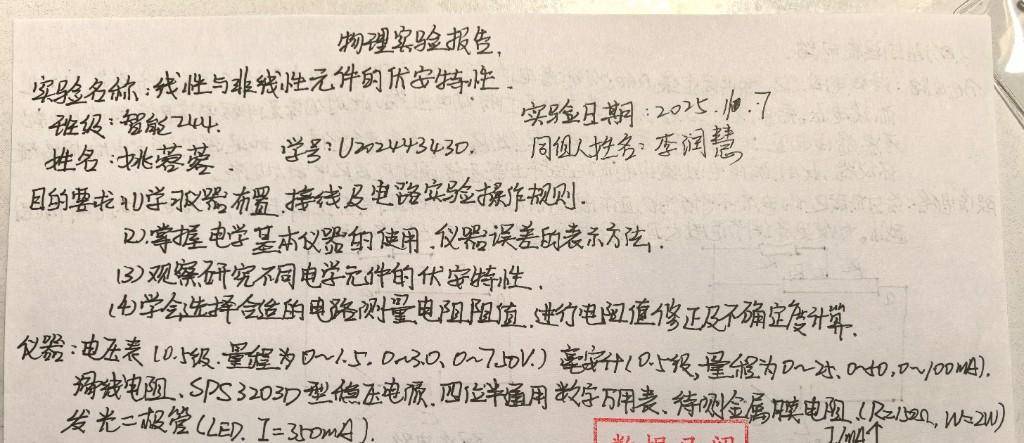 物理实验报告.
实验名称:线性与非线性元件的伏安特性.
实验日期:2025.10.7
班级:智能244.
姓名:姚蓉蓉 学号:U202443430. 同组人姓名:李润慧
目的要求:(1)学习仪器布置、接线及电路实验操作规则.
(2)掌握电学基本仪器的使用、仪器误差的表示方法.
(3)观察研究不同电学元件的伏安特性.
(4)学会选择合适的电路测量电阻阻值、进行电阻值修正及不确定度计算.
仪器:电压表(0.5级.量程为0~1.5.0~3.0,0~7.50V.)毫安计(0.5级,量程为0~25.0~50,0~100mA).
滑线电阻、SPS3203D型稳压电源、四位半通用数字万用表、待测金属膜电阻(R=150Ω,W=2W)
发光二极管(LED.I=350mA).
I/mA↑